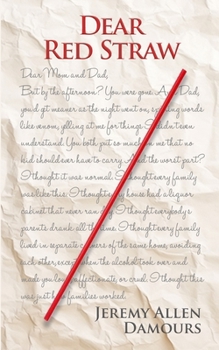 DEAR
RED STRAW
Dear Mom and Dad,
But by the afternoon? You were gone. And Dad,
you'd get meaner as the night went on, words
like venom, yelling at me for things I didn't even
understand. You both put so much on me that no
kid should ever have to carry. And the worst part?
I thought it was normal. I thought every family
was like this. I thought every house had a liquor
cabinet that never ran dry. I thought everybody's
parents drank all the time. I thought every family
lived in separate corners of the same home, avoiding
each other, except when the alcohol took over and
made you loving, affectionate, or cruel. I thought this
was just how families worked.
JEREMY ALLEN
DAMOURS